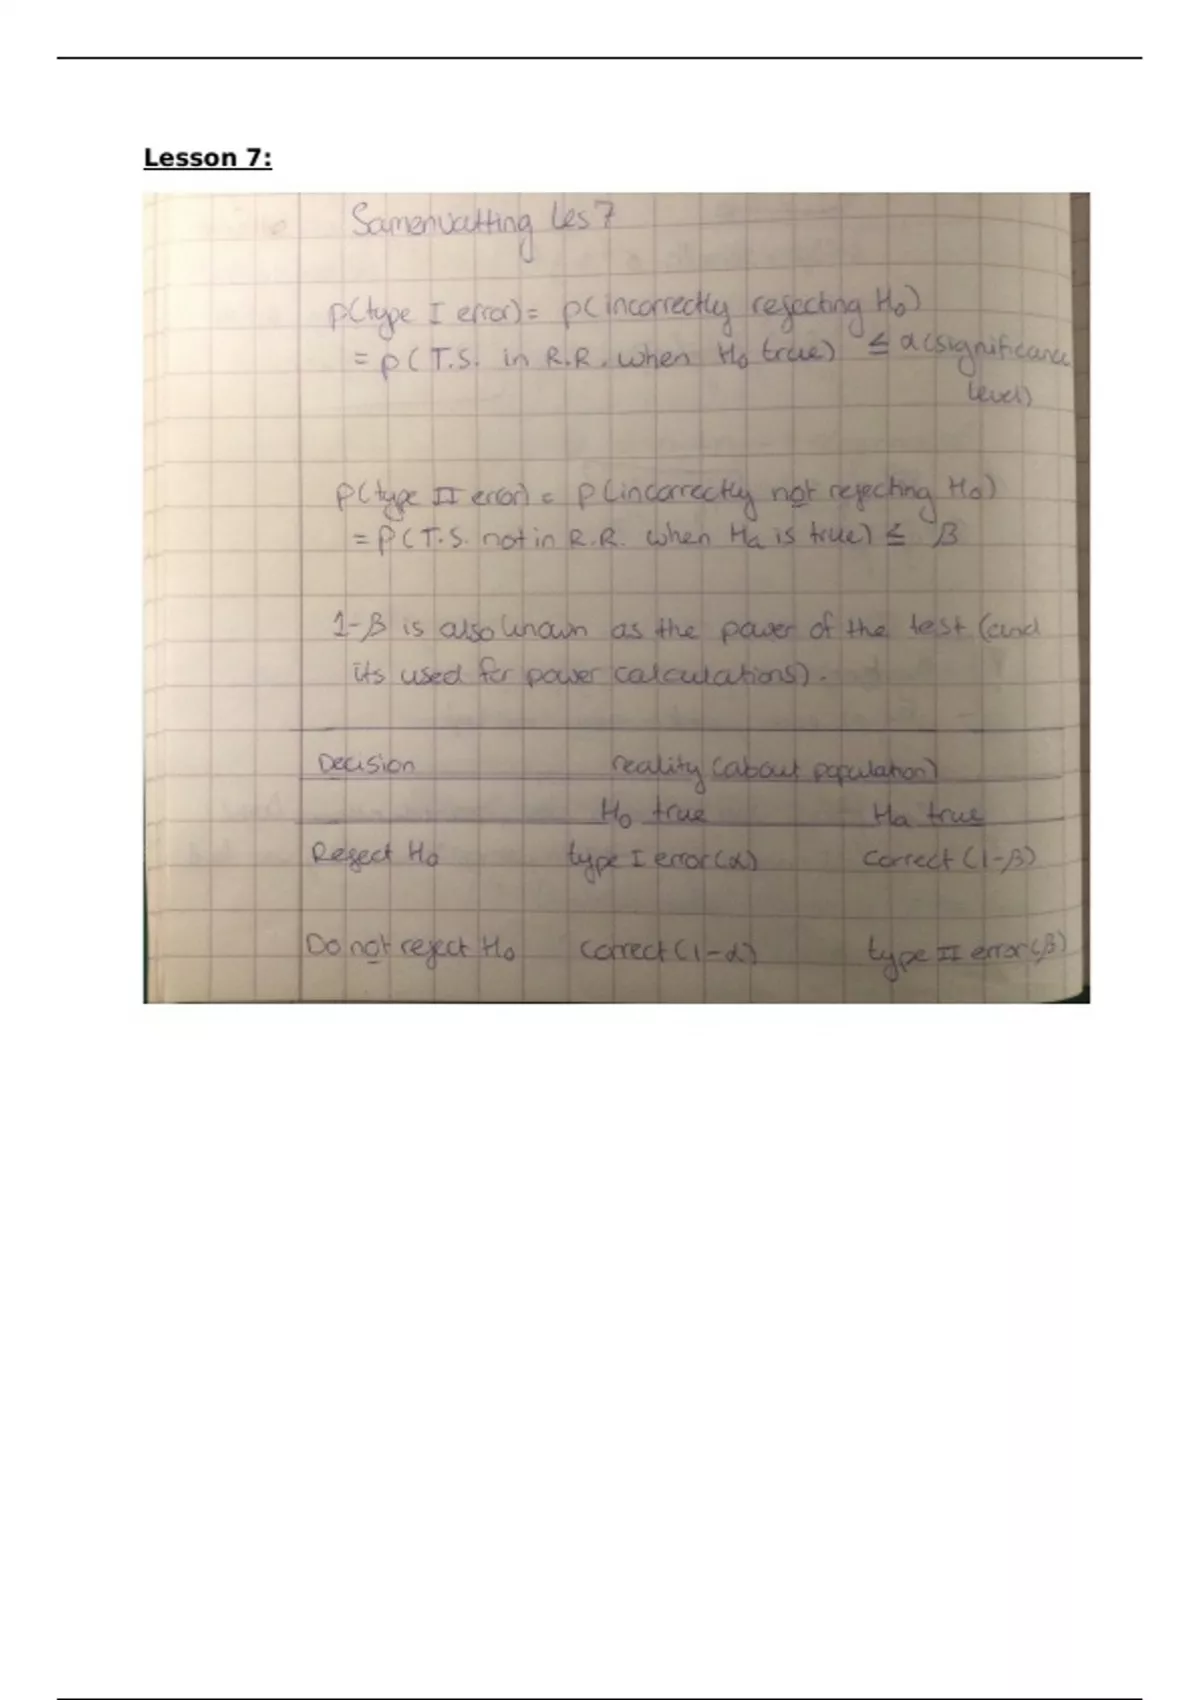 Lesson 7:
Samenvatting Les 7
P(type I error) = P(incorrectly rejecting H₀)
= P(T.S. in R.R. when H₀ true) ≤ α (significance
level)
P(type II error) = P(incorrectly not rejecting H₀)
= P(T.S. not in R.R. when Ha is true) ≤ β
1-β is also known as the power of the test (and
its used for power calculations).
Decision reality (about population)
H₀ true Ha true
Reject H₀ type I error (α) Correct (1-β)
Do not reject H₀ Correct (1-α) type II error (β)